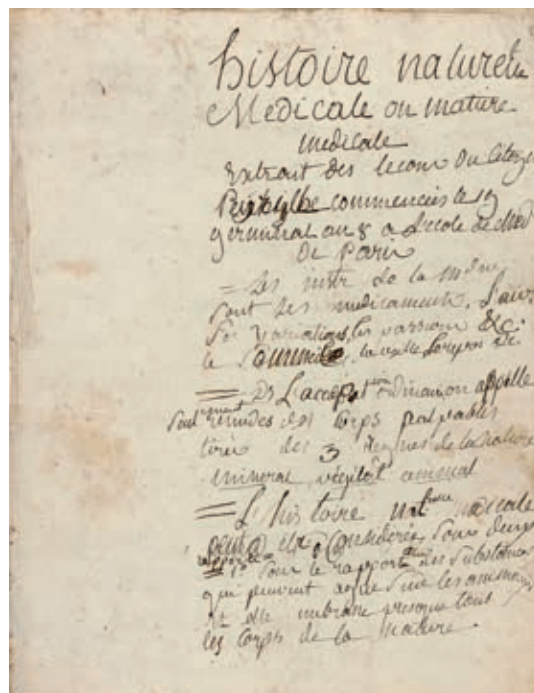 histoire naturelle
Medicale ou matiere
medicale
Extrait des lecons du Citoyen
commencées le 19
germinal an 8 a L'ecole de Med
de Paris
= Les instr de la mdne
sont les medicaments, L'air
ses variations, les passions &c.
le sommeil, la veille Le repos &c
= Ds L'accept tion ordinaire on appelle
medicaments remedes les corps palpables
tirés des 3 regnes de la nature
mineral végétal animal
= L'histoire nat medicale
considérée sous deux
rapports = 1° sous le rapport des substances
qui peuvent agir sur les animaux
2° elle embrasse presque tous
les corps de la nature.